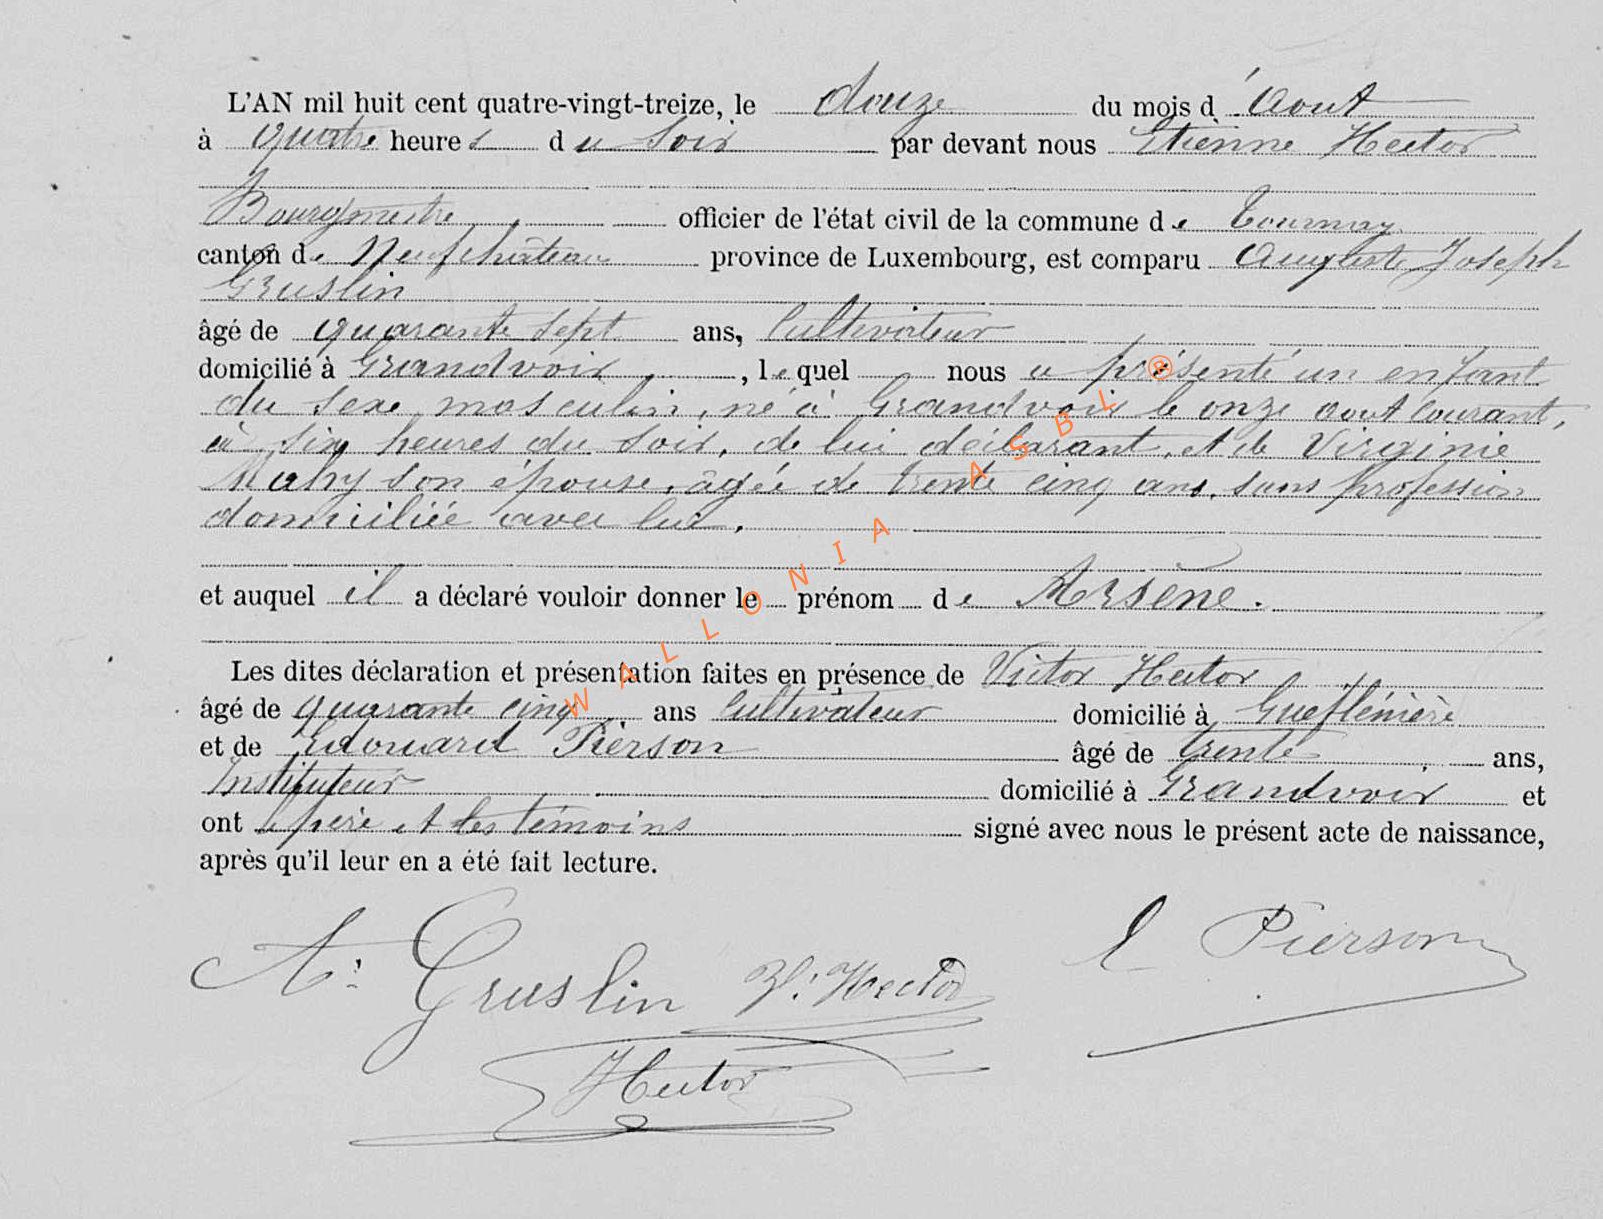 L'AN mil huit cent quatre-vingt-treize, le douze du mois d'Aout
à quatre heures du soir par devant nous Etienne Hector
Bourgmestre officier de l'état civil de la commune de Tournay
canton de Neufchâteau province de Luxembourg, est comparu Auguste Joseph
Gruslin
âgé de quarante sept ans, Cultivateur
domicilié à Grandvoir, lequel nous a présenté un enfant
du sexe masculin, né à Grandvoir le onze aout courant,
à six heures du soir, de lui déclarant, et de Virginie
Mahy son épouse, âgée de trente cinq ans, sans profession
domiciliée avec lui.
et auquel il a déclaré vouloir donner le prénom de Arsène.
Les dites déclaration et présentation faites en présence de Victor Hector
âgé de quarante cinq ans Cultivateur domicilié à
et de Edouard Pierson âgé de trente ans,
Instituteur domicilié à Grandvoir et
ont le père et les témoins signé avec nous le présent acte de naissance,
après qu'il leur en a été fait lecture.
A: Gruslin V: Hector E Pierson
Hector
WALLONIA ASBL ®